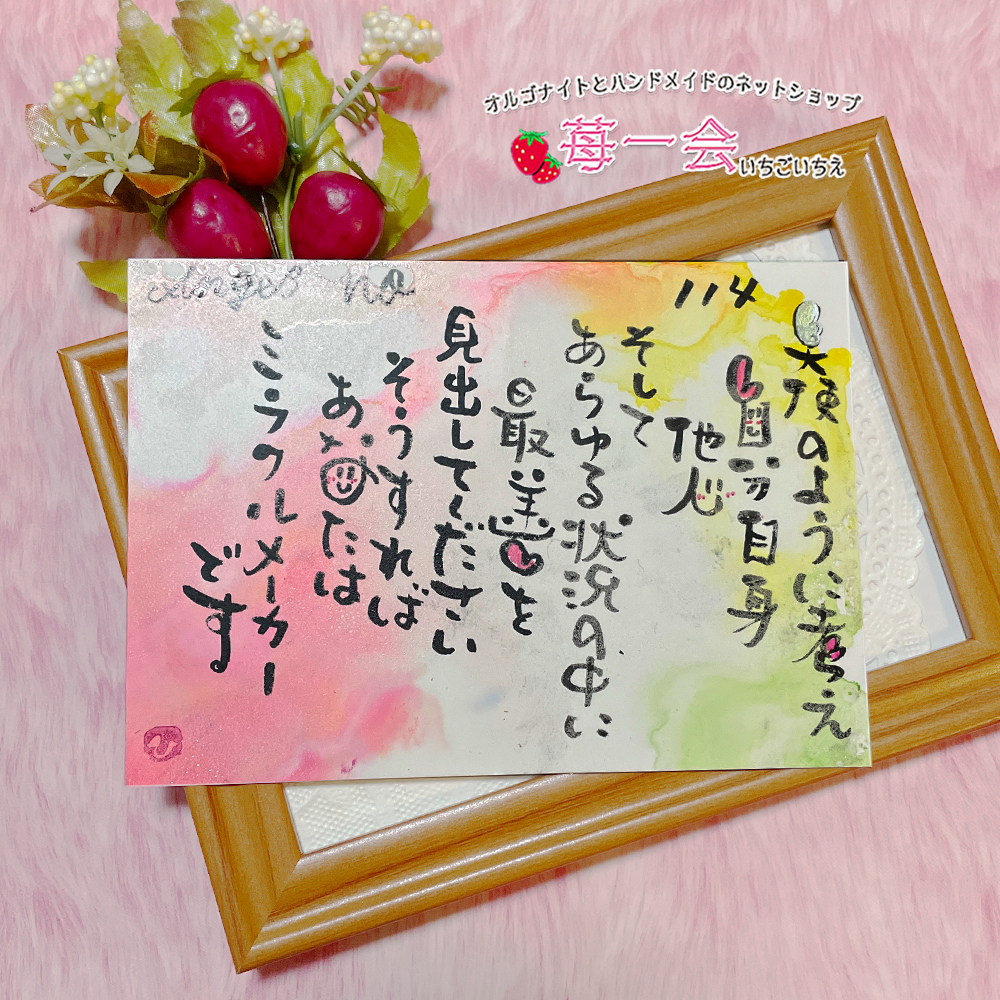 オルゴナイトとハンドメイドのネットショップ
苺一会
いちごいちえ
Angel no
114
天使のように考え
自分自身
他人
そして
あらゆる状況の中に
最善を
見出してください
そうすれば
あなたは
ミラクルメーカー
です